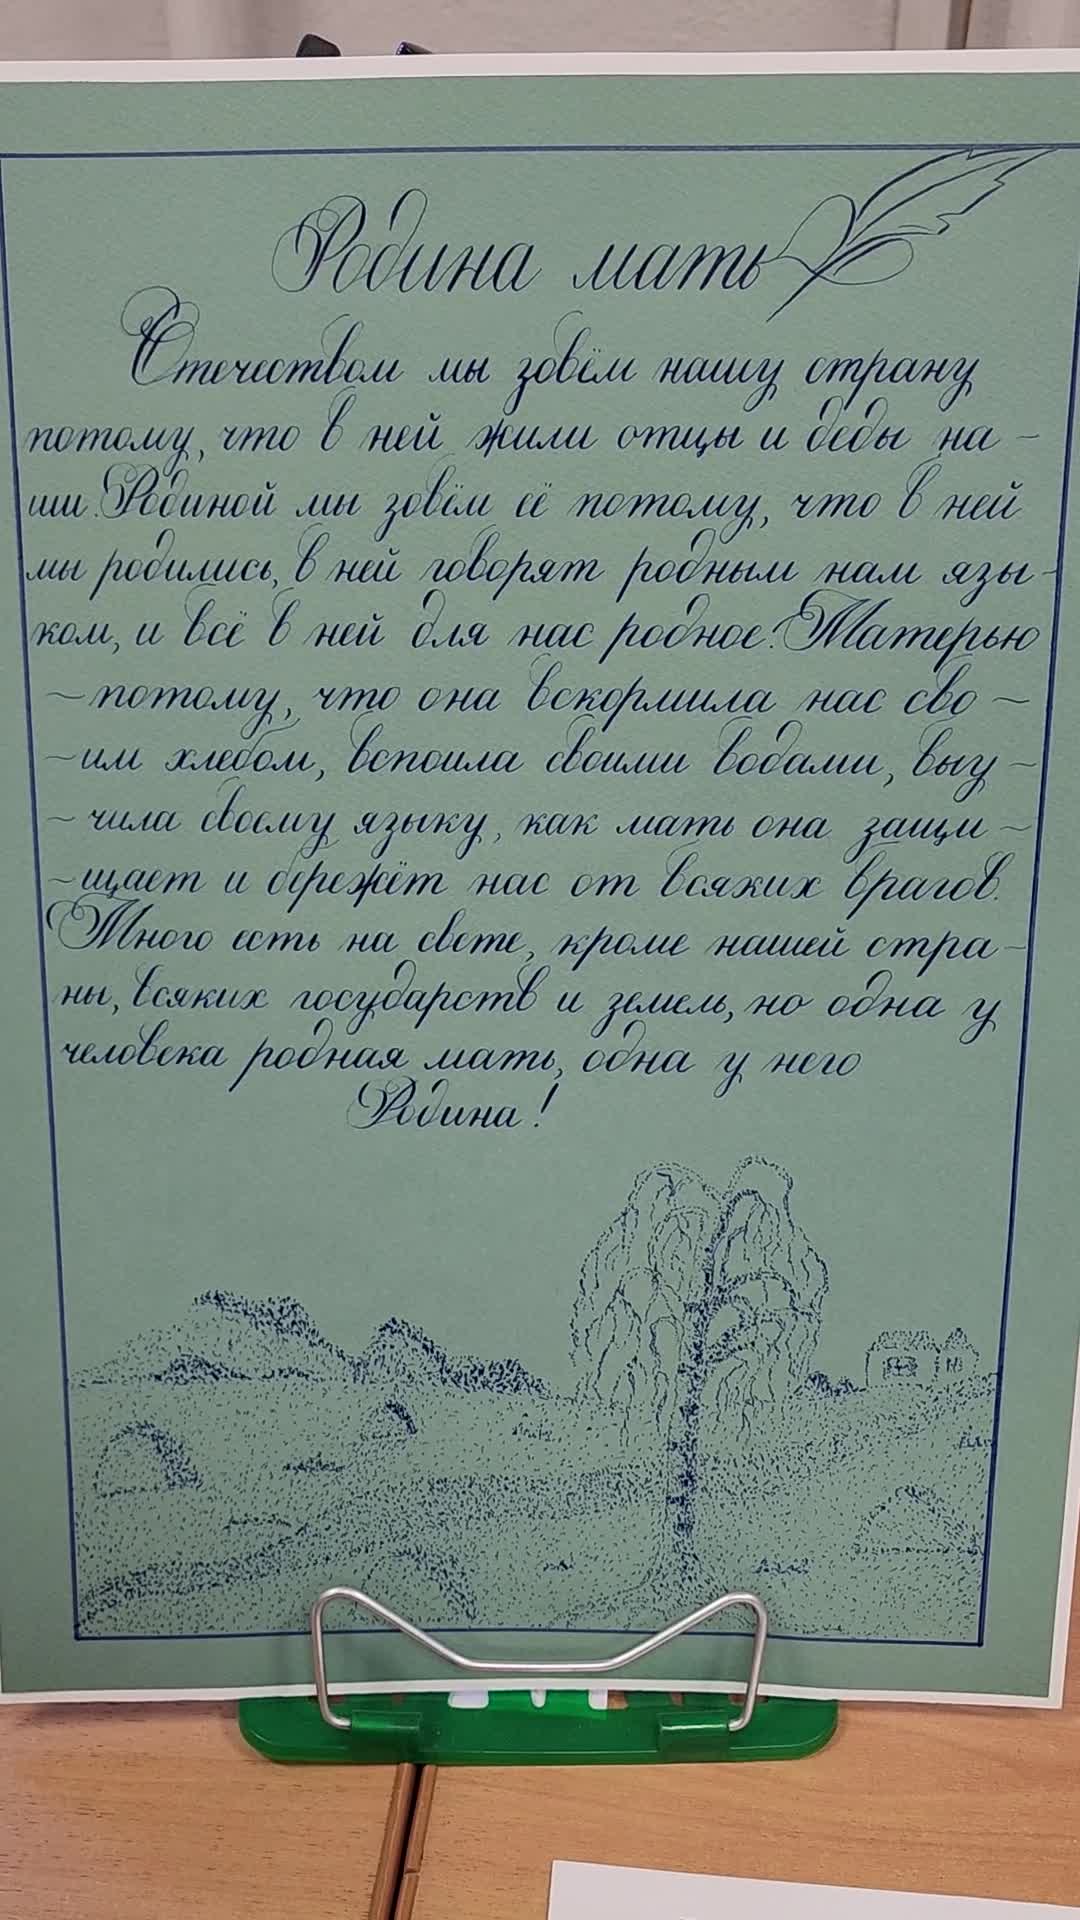 Родина мать
Отечеством мы зовём нашу страну
потому, что в ней жили отцы и деды на-
ши. Родиной мы зовём её потому, что в ней
мы родились, в ней говорят родным нам язы-
ком, и всё в ней для нас родное. Матерью
- потому, что она вскормила нас сво-
-им хлебом, вспоила своими водами, выу-
-чила своему языку, как мать она защи-
-щает и бережёт нас от всяких врагов.
Много есть на свете, кроме нашей стра-
ны, всяких государств и земель, но одна у
человека родная мать, одна у него
Родина!